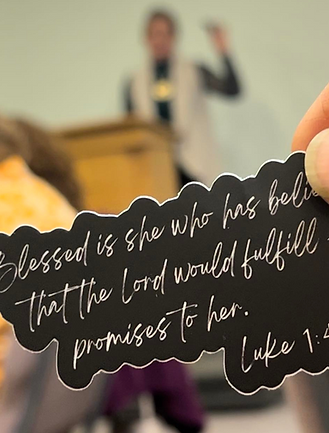 Blessed is she who has belie
that the Lord would fulfill
promises to her.
Luke 1:4